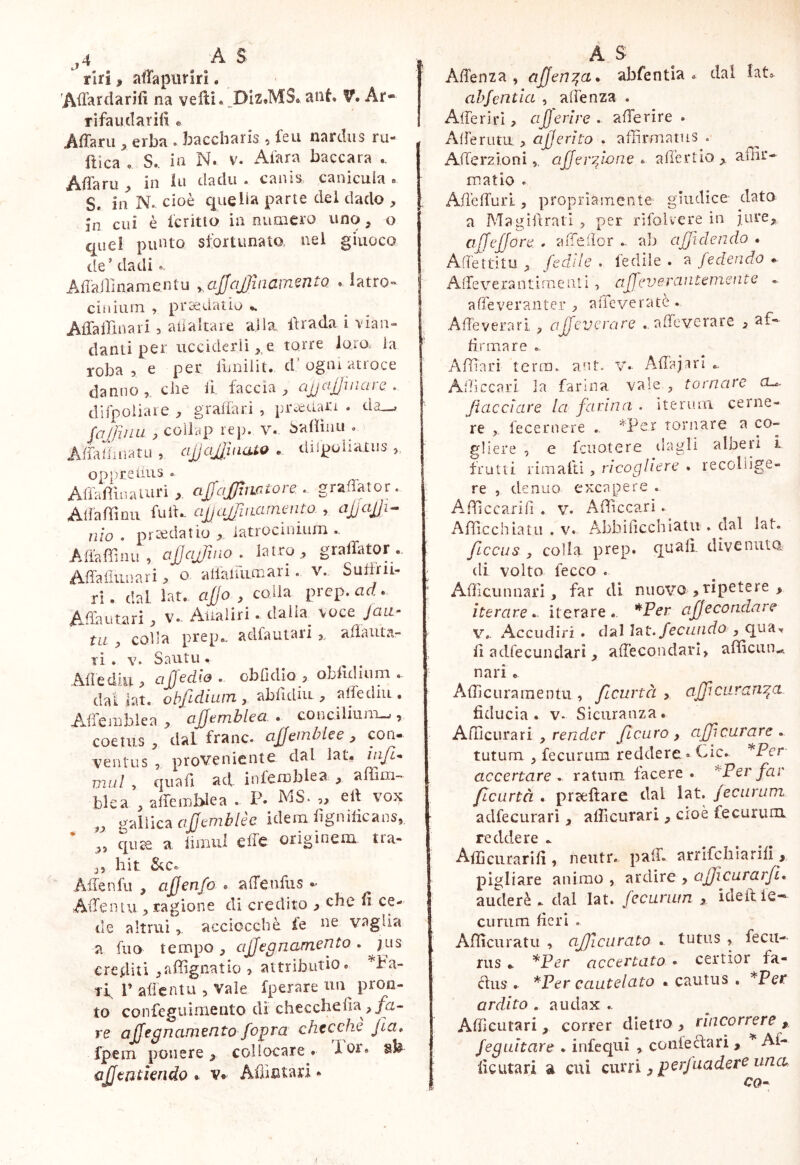 34 A S
riri, assapuriri.
Assardarisi na vesti. Diz.MS. ant. V. Ar-
risaudarisi.
Assaru, erba. baccharis, seu nardus ru-
stica. S. in N. v. Asara baccara.
Assaru, in lu dadu. canis canicula.
S. in N. cioè quella parte del dado,
in cui è scritto in numero uno, o
quel punto sfortunato nel giuoco
de' dadi.
Assassinamentu, assassinamento. latro-
cinium, prædatio.
Assassinari, assaltare alla strada i vian-
danti per ucciderli, e torre loro la
roba, e per simílit. d' ogni atroce
danno, che si faccia, assassinare.
dispoliare, grassari, prædari. da
sassinu, collap rep. v. Sassinu.
Assassinatu, assassinato. dispoliatus,
oppressus.
Assassinaturi, assassinatore. grassator.
Assassinu sust. assassinamento, assassi-
nio. prædatio, latrocinium.
Assassinu, assassino. latro, grassator.
Assassunari, o assassumari. v. Sussrii-
ri. dal lat. asso, colla prep. ad.
Assautari, v. Assaliri. dalla voce sau-
tu, colla prep. adsautari, assauta-
ri. v. Sautu.
Assediu, assedio. obsidio, obsidium.
dal lat. obsidium, absidiu, assediu.
Assemblea, assemblea. concilium,
coetus, dal franc. assemblee, con-
ventus, proveniente dal lat. insi-
mul, quasi ad insemblea, assim-
blea, assemblea. P. MS. „ est vox
„ gallica assemblèe idem significans,
„ quæ a simul esse originem tra-
„ hit &c.
Assensu, assenso. assensus.
Assentu, ragione di credito, che si ce-
de altrui, acciocchè se ne vaglia
a suo tempo, assegnamento. jus
crediti, assignatio, attributio. *Fa-
ri l' assentu, vale sperare un pron-
to conseguimento di checchesia, fa-
re assegnamento sopra checchè sia.
spem ponere, collocare. Tor. ab
assentiendo. v. Assintari.
A S
Assenza, assenza. absentia. dal lat.
absentia, assenza.
Asseriri, asserire. asserire.
Asserutu, asserito. assirmatus.
Asserzioni, asserzione. assertio, assir-
matio.
Assessuri, propriamente giudice dato
a Magistrati, per risolvere in jure,
assessore. assessor. ab assidendo.
Assettitu, sedile. sedile. a sedendo.
Asseverantimenti, asseverantemente.
asseveranter, asseveratè.
Asseverari, asseverare. asseverare, af-
firmare.
Assiari term. ant. v. Assajari.
Assiccari la farina vale, tornare a
stacciare la farina. iterum cerne-
re, secernere. *Per tornare a co-
gliere, e scuotere dagli alberi i
frutti rimasti, ricogliere. recollige-
re, denuo excapere.
Assiccarisi. v. Assiccari.
Assicchiatu. v. Abbisicchiatu. dal lat.
siccus, colla prep. quasi divenuto
di volto secco.
Assicunnari, far di nuovo, ripetere,
iterare. iterare. *Per assecondare
v. Accudiri. dal lat. secundo, qua,
si adsecundari, assecondari, assicun-
nari.
Assicuramentu, sicurtà, assicuranza.
fiducia. v. Sicuranza.
Assicurari, render sicuro, assicurare.
tutum, securum reddere. Cic. *Per
accertare. ratum facere. *Per far
sicurtà. præstare dal lat. securum
adsecurari, assicurari, cioè securum
reddere.
Assicurarisi, neutr. pass. arrischiarsi,
pigliare animo, ardire, assicurarsi.
auderè. dal lat. securum, idest se-
curum fieri.
Assicuratu, assicurato. tutus, secu-
rus. *Per accertato. certior fa-
ctus. *Per cautelato. cautus. *Per
ardito. audax.
Assicutari, correr dietro, rincorrere,
seguitare. insequi, consectari, * As-
sicutari a cui curri, persuadere una
co-